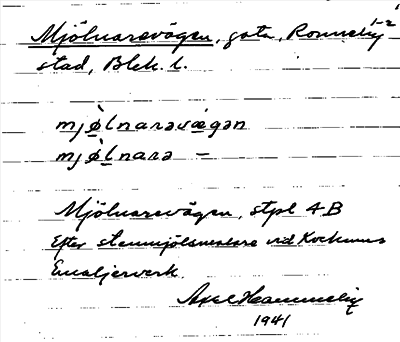 Mjölnarevägen, gata, Ronneby 1-2
stad, Blek. l.
mjø̀lnarəvægən
mjø̀lnarə —
Mjölnarevägen, stpl 4B
Efter stenmjölsmalare vid Kockums
Emaljerverk.
Axel Hammelig
1941